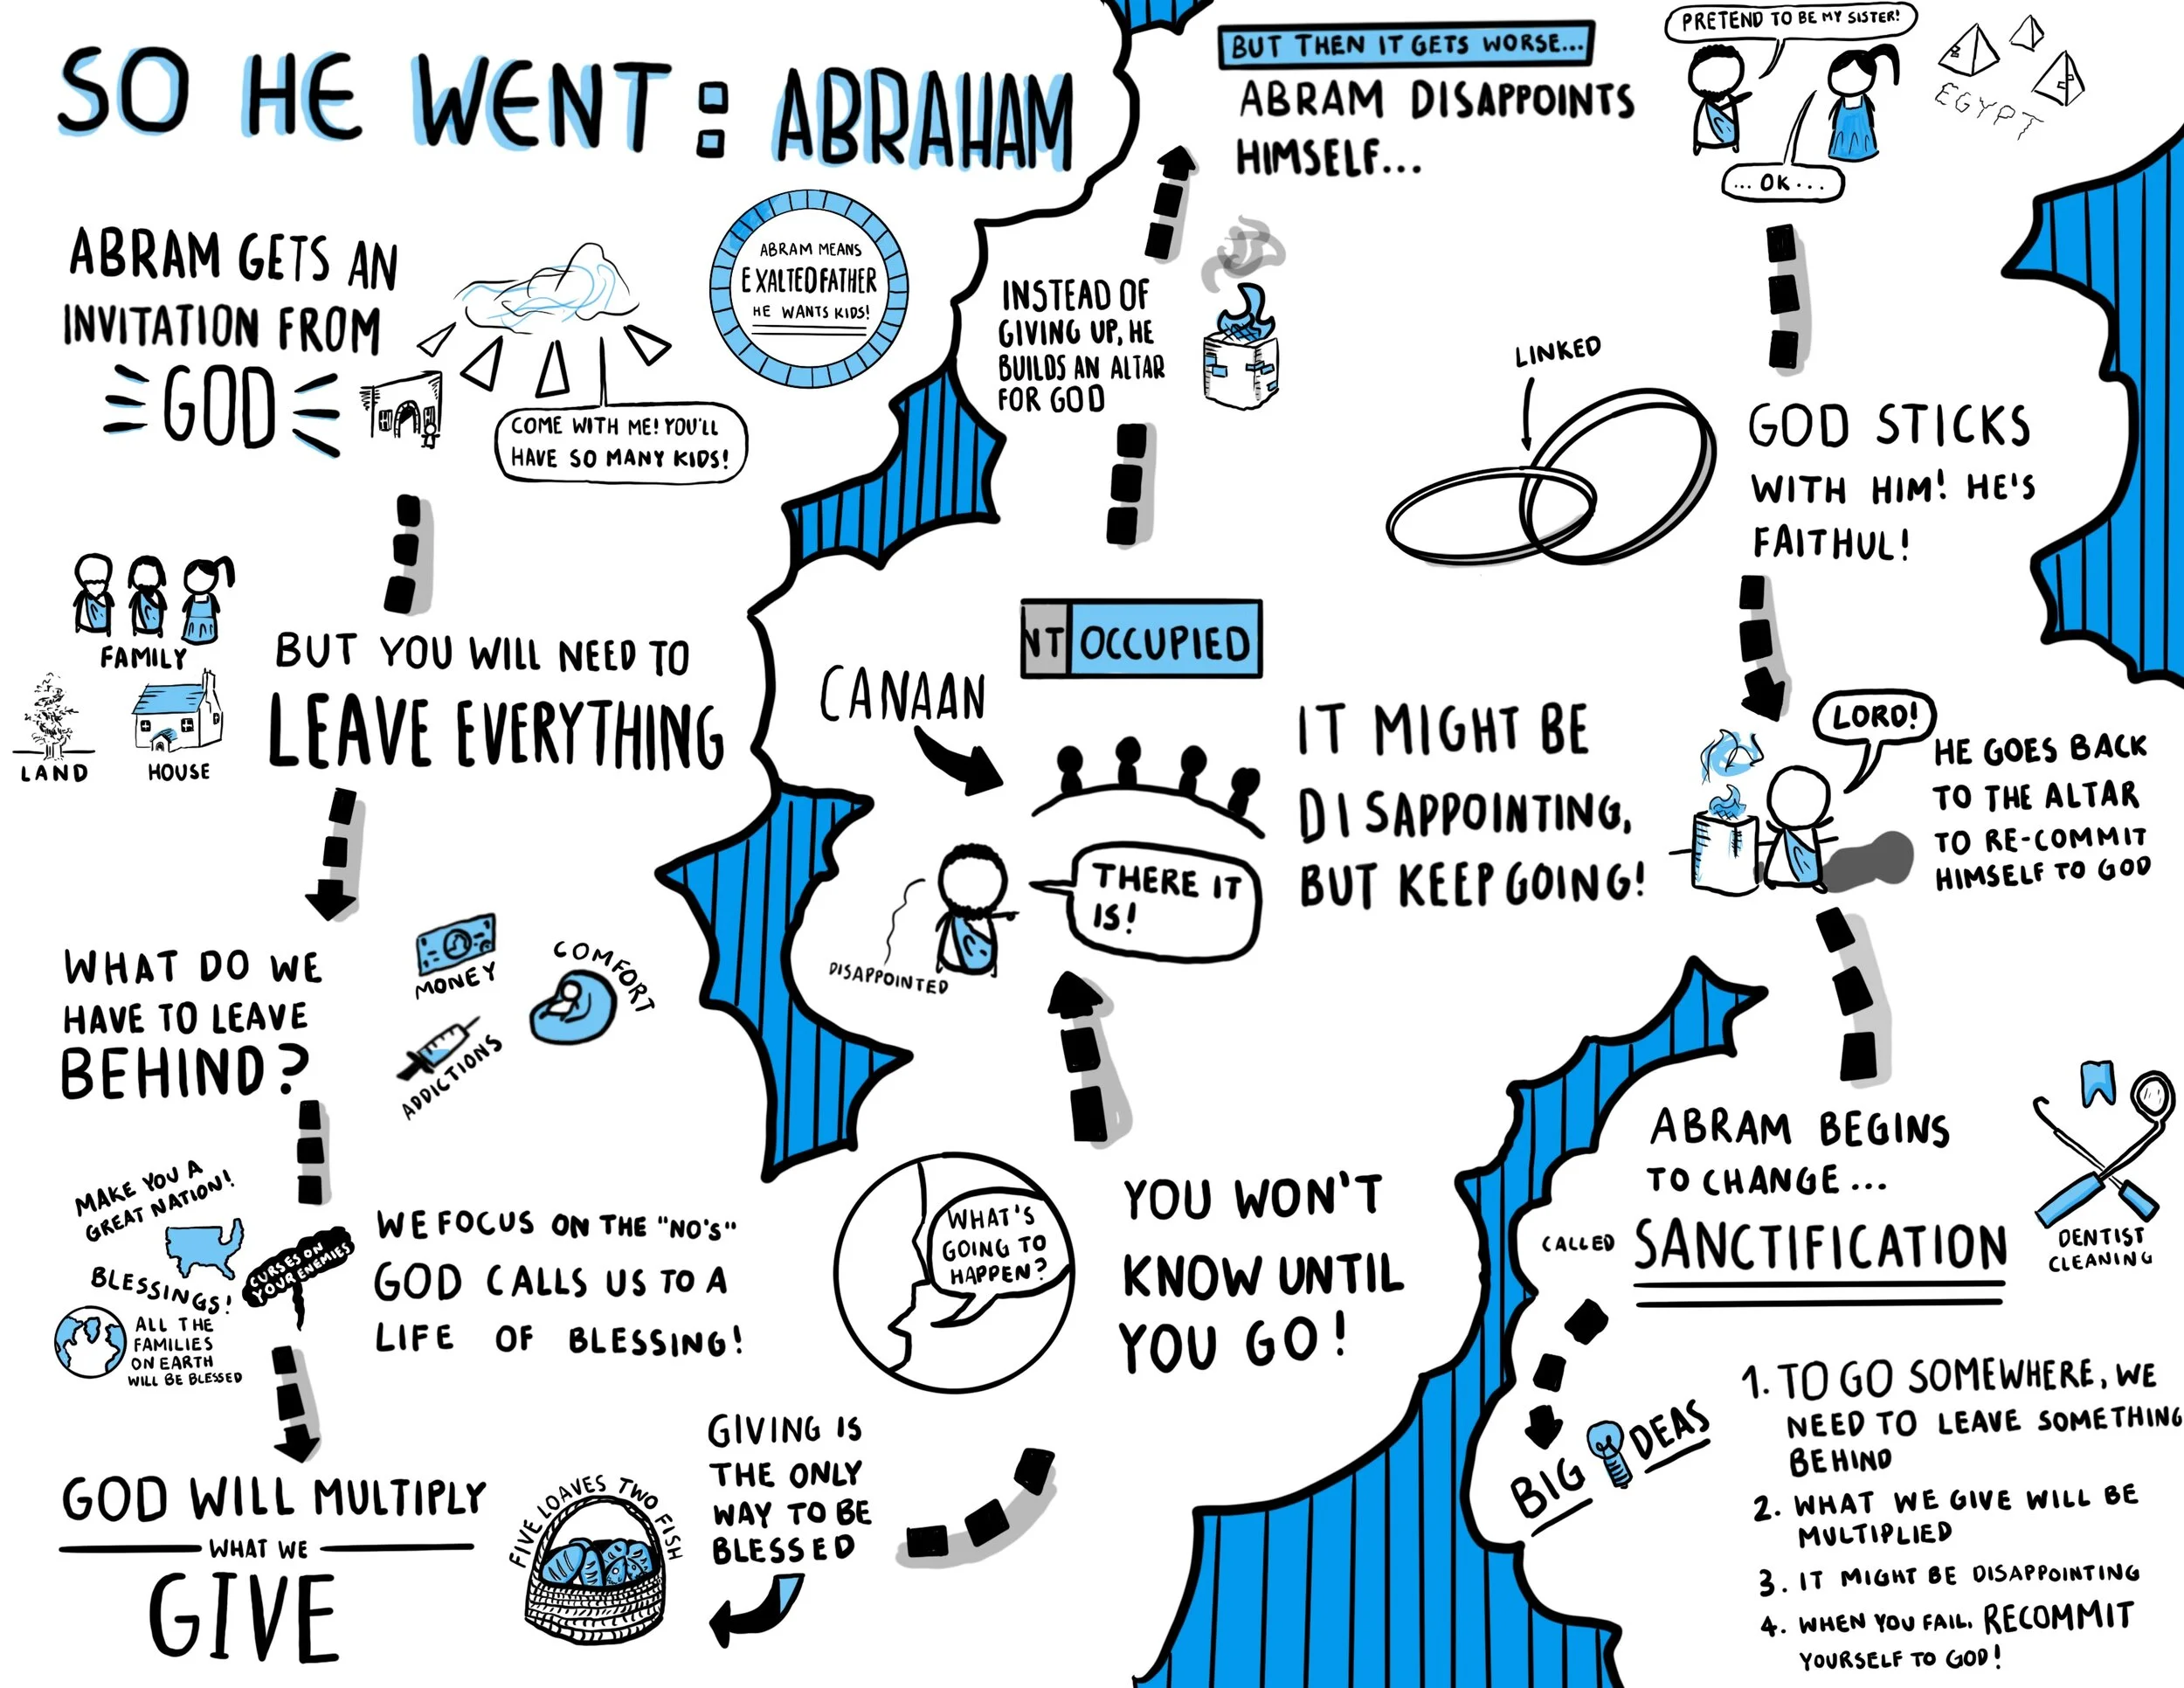 SO HE WENT: ABRAHAM
ABRAM GETS AN
INVITATION FROM
GOD
ABRAM MEANS
EXALTED FATHER
HE WANTS KIDS!
COME WITH ME! YOU'LL
HAVE SO MANY KIDS!
FAMILY
LAND
HOUSE
BUT YOU WILL NEED TO
LEAVE EVERYTHING
WHAT DO WE
HAVE TO LEAVE
BEHIND?
MONEY
COMFORT
ADDICTIONS
MAKE YOU A
GREAT NATION!
BLESSINGS!
CURSES ON
YOUR ENEMIES
ALL THE
FAMILIES
ON EARTH
WILL BE BLESSED
WE FOCUS ON THE "NO'S"
GOD CALLS US TO A
LIFE OF BLESSING!
GOD WILL MULTIPLY
WHAT WE
GIVE
FIVE LOAVES TWO FISH
GIVING IS
THE ONLY
WAY TO BE
BLESSED
WHAT'S
GOING TO
HAPPEN?
YOU WON'T
KNOW UNTIL
YOU GO!
CANAAN
NT OCCUPIED
THERE IT
IS!
DISAPPOINTED
IT MIGHT BE
DISAPPOINTING,
BUT KEEP GOING!
INSTEAD OF
GIVING UP, HE
BUILDS AN ALTAR
FOR GOD
BUT THEN IT GETS WORSE...
ABRAM DISAPPOINTS
HIMSELF...
PRETEND TO BE MY SISTER!
... OK ...
EGYPT
LINKED
GOD STICKS
WITH HIM! HE'S
FAITHUL!
LORD!
HE GOES BACK
TO THE ALTAR
TO RE-COMMIT
HIMSELF TO GOD
ABRAM BEGINS
TO CHANGE...
CALLED SANCTIFICATION
DENTIST
CLEANING
BIG IDEAS
1. TO GO SOMEWHERE, WE
NEED TO LEAVE SOMETHING
BEHIND
2. WHAT WE GIVE WILL BE
MULTIPLIED
3. IT MIGHT BE DISAPPOINTING
4. WHEN YOU FAIL, RECOMMIT
YOURSELF TO GOD!